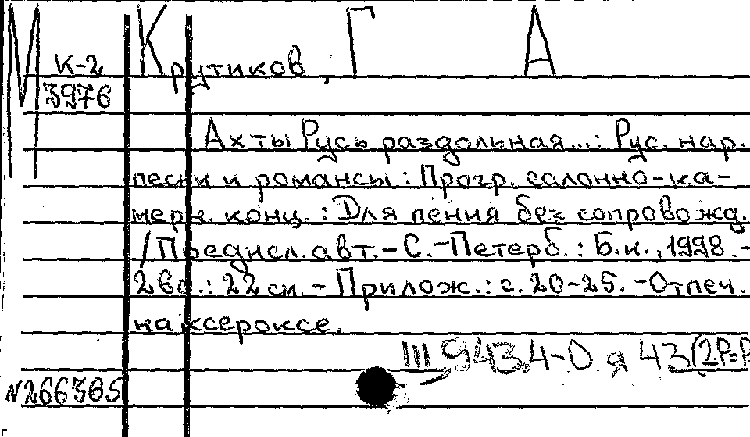 М К-2 Крутиков, Г А
3976
Ах ты Русь раздольная...: Рус. нар.
песни и романсы : Прогр. салонно-ка-
мерн. конц. : Для пения без сопровожд.
/Предисл. авт. - С.-Петерб. : Б.и., 1998. -
26с. : 22 см. - Прилож.: с. 20-25. - Отпеч.
на ксероксе.
III 943.4-0 я 43
N266365